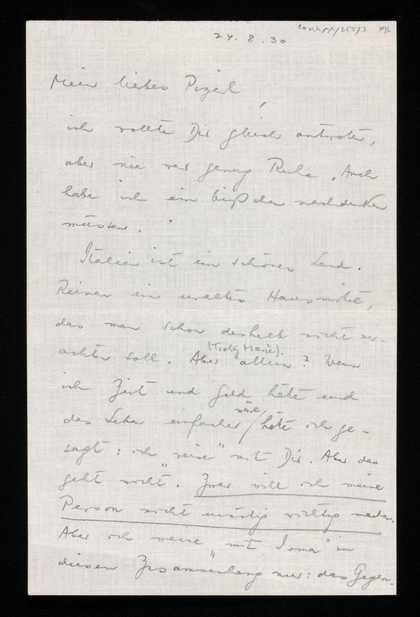 24. 8. 30
Mein liebes Pizerl,
ich wollte Dir gleich antworten,
aber nie war genug Ruhe. Auch
habe ich ein bißchen nachdenken
müssen.
Italien ist ein schönes Land.
Reisen ein uraltes Hausmittel,
das man schon deshalb nicht ver-
achten soll. Aber "allein"? Wenn
ich Zeit und Geld hätte und
das Leben einfacher wäre, hätte ich ge-
sagt: ich "reise" mit Dir. Aber das
geht nicht. Zwar will ich meine
Person nicht wichtig machen.
Aber ich meine "mit Irma" in
diesem Zusammenhang nur: das Gegen-